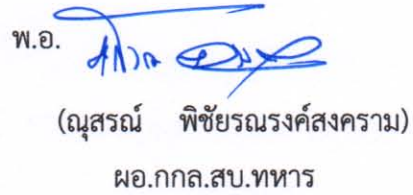 พ.อ.
(ณุสรณ์ พิชัยรณรงค์สงคราม)
ผอ.กกล.สบ.ทหาร